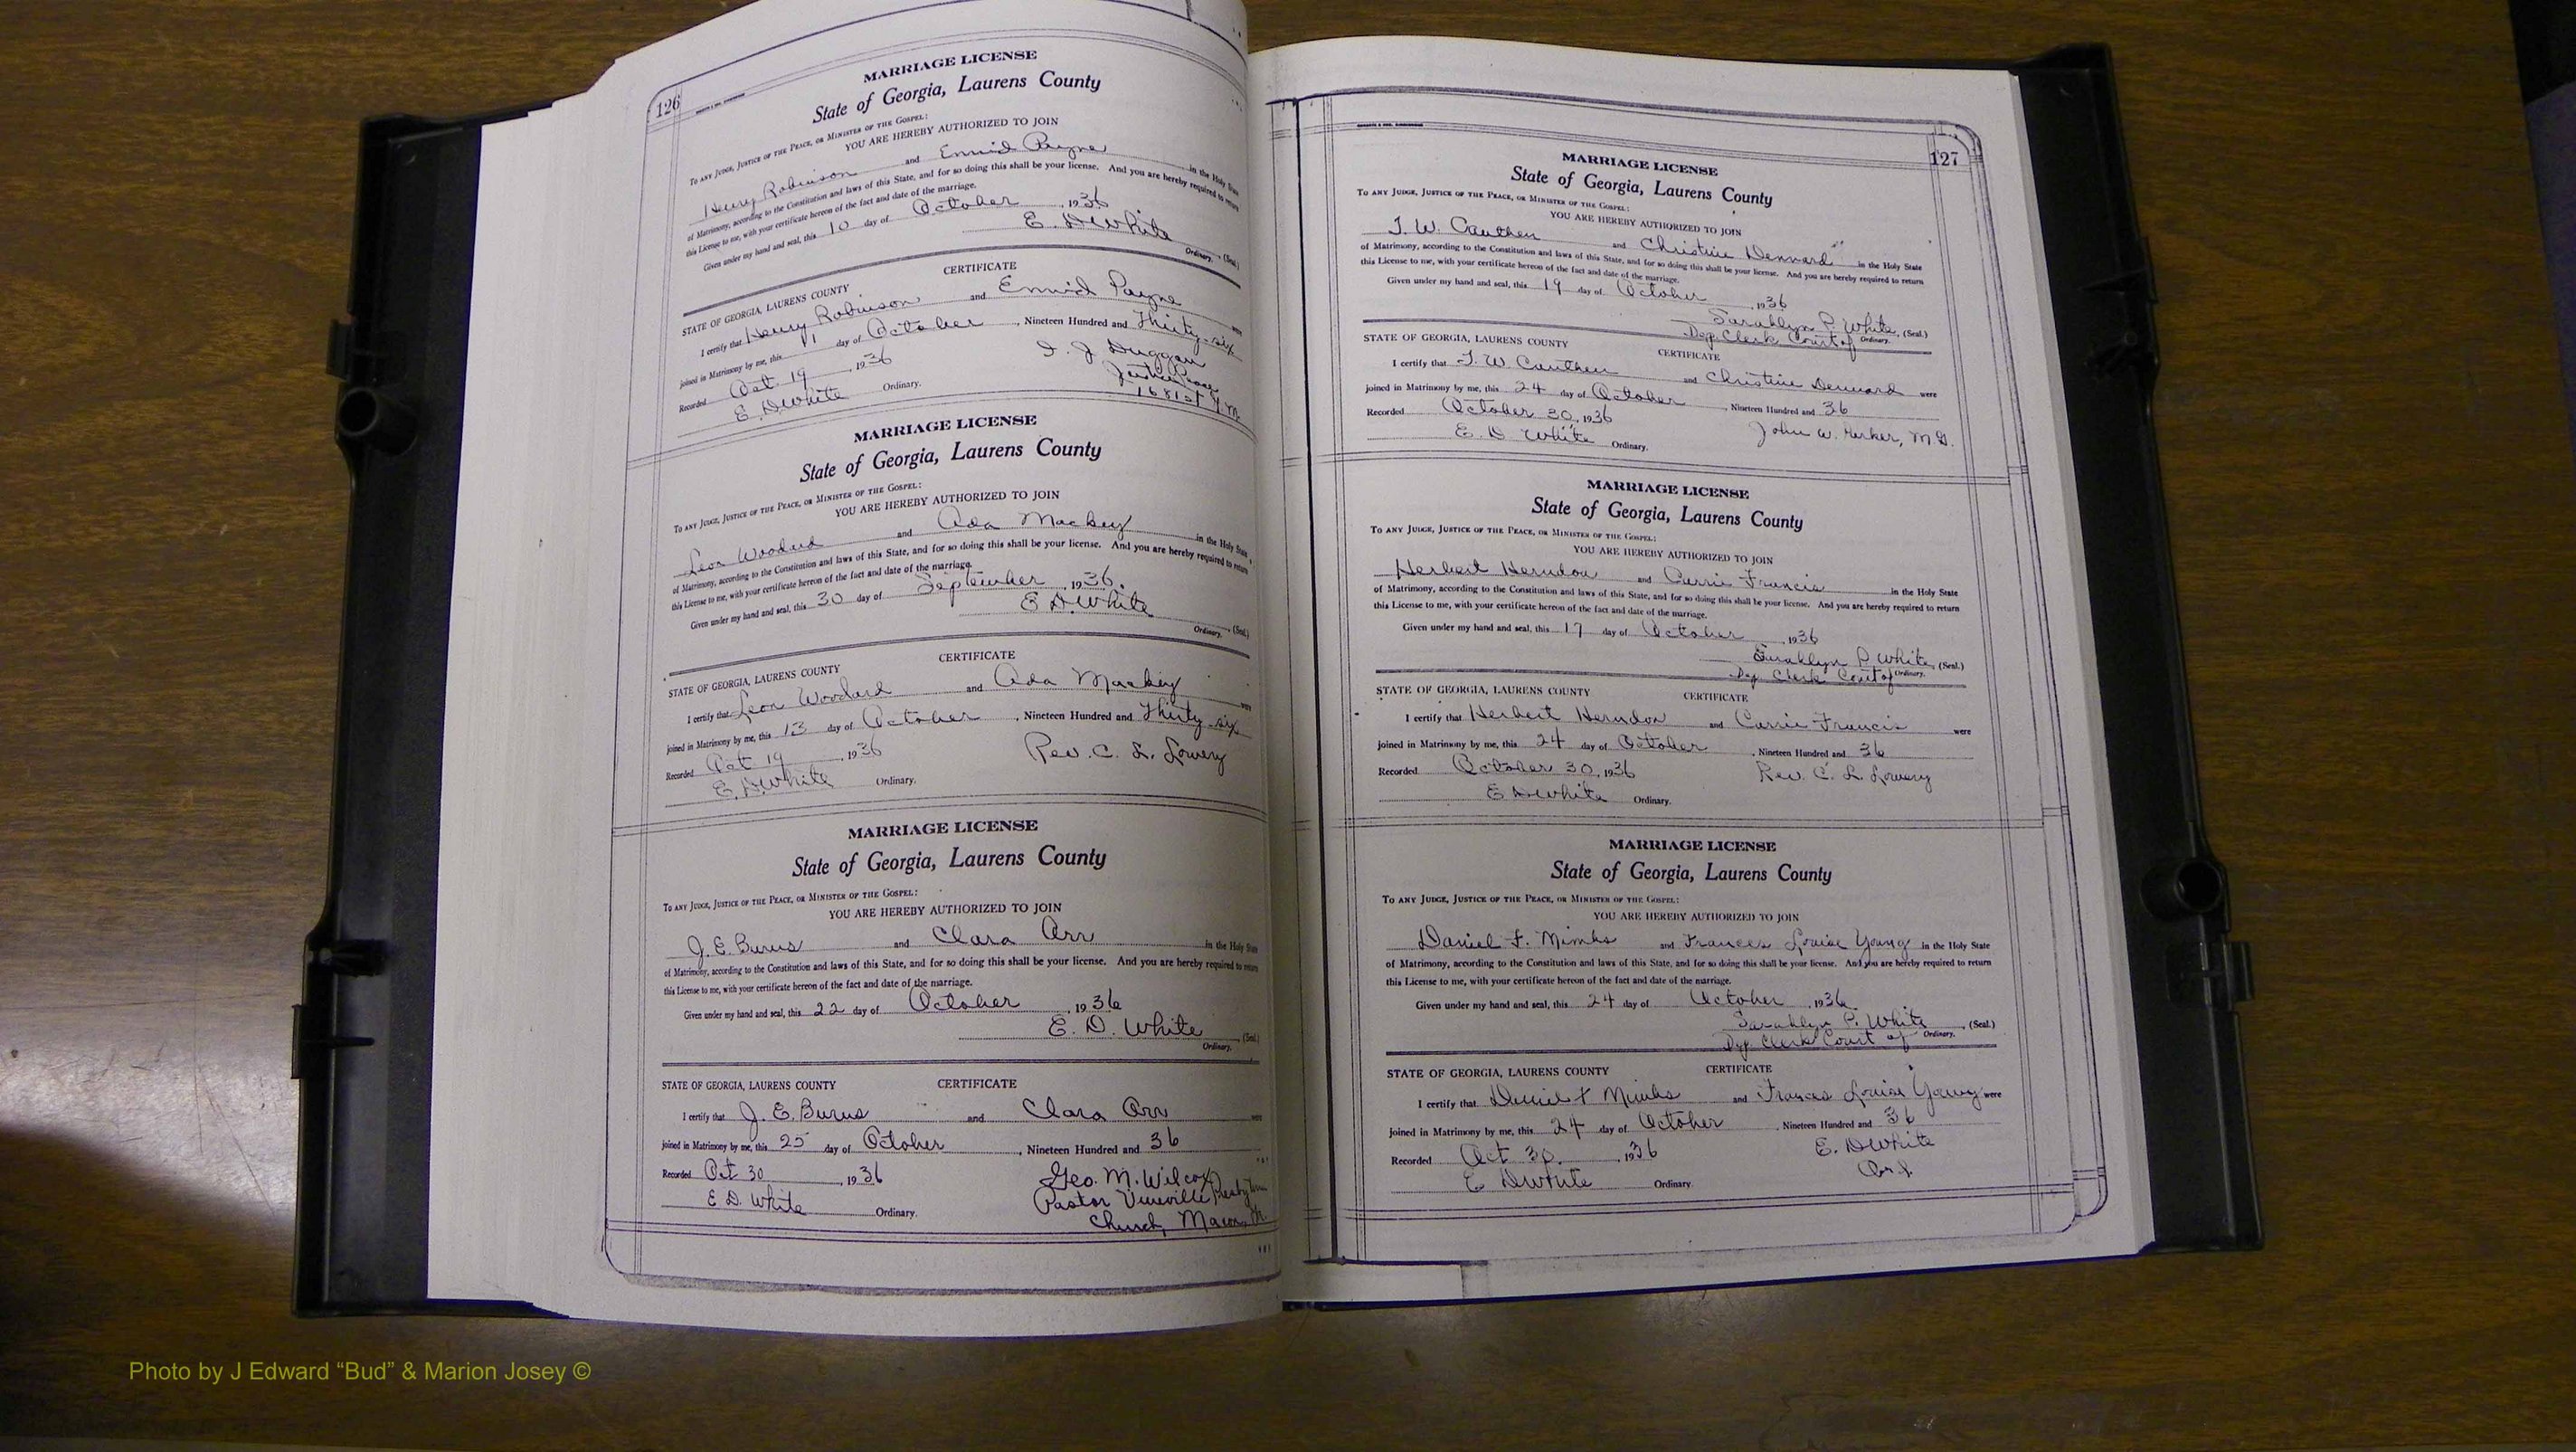 126
MARRIAGE LICENSE
State of Georgia, Laurens County
To any Judge, Justice of the Peace, or Minister of the Gospel:
YOU ARE HEREBY AUTHORIZED TO JOIN
Henry Robinson and Ennid Payne in the Holy State
of Matrimony, according to the Constitution and laws of this State, and for so doing this shall be your license. And you are hereby required to return
this License to me, with your certificate hereon of the fact and date of the marriage.
Given under my hand and seal, this 10 day of October, 1936
E. D White (Seal)
Ordinary.
CERTIFICATE
STATE OF GEORGIA, LAURENS COUNTY
I certify that Henry Robinson and Ennid Payne were
joined in Matrimony by me, this 11 day of October, Nineteen Hundred and Thirty-six
Recorded Oct. 19, 1936
E. D White Ordinary.
Duggan
Justice Peace
1681st G. M.
MARRIAGE LICENSE
State of Georgia, Laurens County
To any Judge, Justice of the Peace, or Minister of the Gospel:
YOU ARE HEREBY AUTHORIZED TO JOIN
Leon Woodard and Ada Mackey in the Holy State
of Matrimony, according to the Constitution and laws of this State, and for so doing this shall be your license. And you are hereby required to return
this License to me, with your certificate hereon of the fact and date of the marriage.
Given under my hand and seal, this 30 day of September, 1936.
E D. White (Seal)
Ordinary.
CERTIFICATE
STATE OF GEORGIA, LAURENS COUNTY
I certify that Leon Woodard and Ada Mackey were
joined in Matrimony by me, this 13 day of October, Nineteen Hundred and Thirty-six
Recorded Oct 19, 1936
Rev. C. L. Lowery
E. D. White Ordinary.
MARRIAGE LICENSE
State of Georgia, Laurens County
To any Judge, Justice of the Peace, or Minister of the Gospel:
YOU ARE HEREBY AUTHORIZED TO JOIN
J. E. Burns and Clara Arr in the Holy State
of Matrimony, according to the Constitution and laws of this State, and for so doing this shall be your license. And you are hereby required to return
this License to me, with your certificate hereon of the fact and date of the marriage.
Given under my hand and seal, this 22 day of October, 1936
E. D. White (Seal)
Ordinary.
STATE OF GEORGIA, LAURENS COUNTY CERTIFICATE
I certify that J. E. Burns and Clara Arr were
joined in Matrimony by me, this 25 day of October, Nineteen Hundred and 36
Recorded Oct 30, 1936
Geo. M. Wilcox
Pastor Vineville Presbyterian
E. D. White Ordinary.
Church, Macon, Ga.
127
MARRIAGE LICENSE
State of Georgia, Laurens County
To any Judge, Justice of the Peace, or Minister of the Gospel:
YOU ARE HEREBY AUTHORIZED TO JOIN
T. W. Cauthen and Christine Dennard in the Holy State
of Matrimony, according to the Constitution and laws of this State, and for so doing this shall be your license. And you are hereby required to return
this License to me, with your certificate hereon of the fact and date of the marriage.
Given under my hand and seal, this 19 day of October, 1936
Sarahlyn P. White, (Seal.)
Dep. Clerk Court of Ordinary.
STATE OF GEORGIA, LAURENS COUNTY CERTIFICATE
I certify that T. W. Cauthen and Christine Dennard were
joined in Matrimony by me, this 24 day of October, Nineteen Hundred and 36
Recorded October 30, 1936
John W. M. G.
E. D. White Ordinary.
MARRIAGE LICENSE
State of Georgia, Laurens County
To any Judge, Justice of the Peace, or Minister of the Gospel:
YOU ARE HEREBY AUTHORIZED TO JOIN
Herbert Herndon and Carrie Francis in the Holy State
of Matrimony, according to the Constitution and laws of this State, and for so doing this shall be your license. And you are hereby required to return
this License to me, with your certificate hereon of the fact and date of the marriage.
Given under my hand and seal, this 17 day of October, 1936
Sarahlyn P White, (Seal.)
Dep Clerk Court of Ordinary.
STATE OF GEORGIA, LAURENS COUNTY CERTIFICATE
I certify that Herbert Herndon and Carrie Francis were
joined in Matrimony by me, this 24 day of October, Nineteen Hundred and 36
Recorded October 30, 1936
Rev. C. L. Lowery
E D White Ordinary.
MARRIAGE LICENSE
State of Georgia, Laurens County
To any Judge, Justice of the Peace, or Minister of the Gospel:
YOU ARE HEREBY AUTHORIZED TO JOIN
Daniel F. Mimbs and Frances Louise Young in the Holy State
of Matrimony, according to the Constitution and laws of this State, and for so doing this shall be your license. And you are hereby required to return
this License to me, with your certificate hereon of the fact and date of the marriage.
Given under my hand and seal, this 24 day of October, 1936
Sarahlyn P. White, (Seal.)
Dep. Clerk Court of Ordinary.
STATE OF GEORGIA, LAURENS COUNTY CERTIFICATE
I certify that Daniel F Mimbs and Frances Louise Young were
joined in Matrimony by me, this 24 day of October, Nineteen Hundred and 36
Recorded Oct 30, 1936
E. D White
Ord.
E D White Ordinary.
Photo by J Edward “Bud” & Marion Josey ©